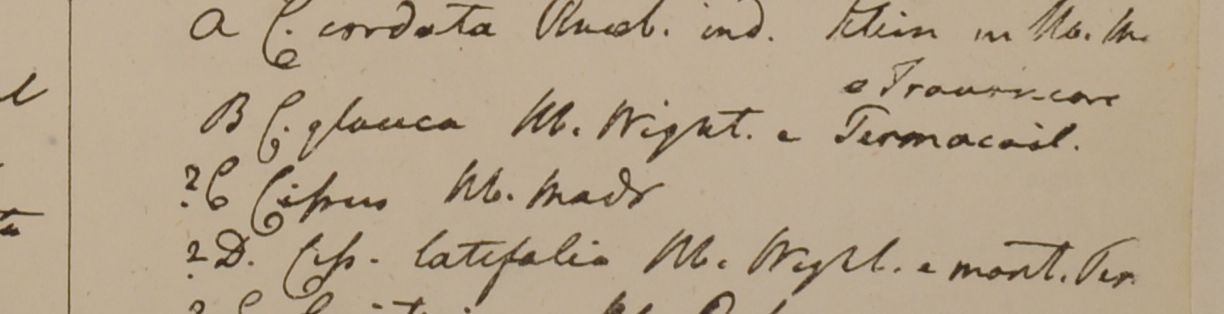 A C. cordata Roxb. ind. Klein in Hb. M.
e Travancore
B C. glauca Hb. Wight. e Termacoil.
? C Cissus Hb. Madr
? D. Ciss. latifolia Hb. Wight. e mont. Ter.